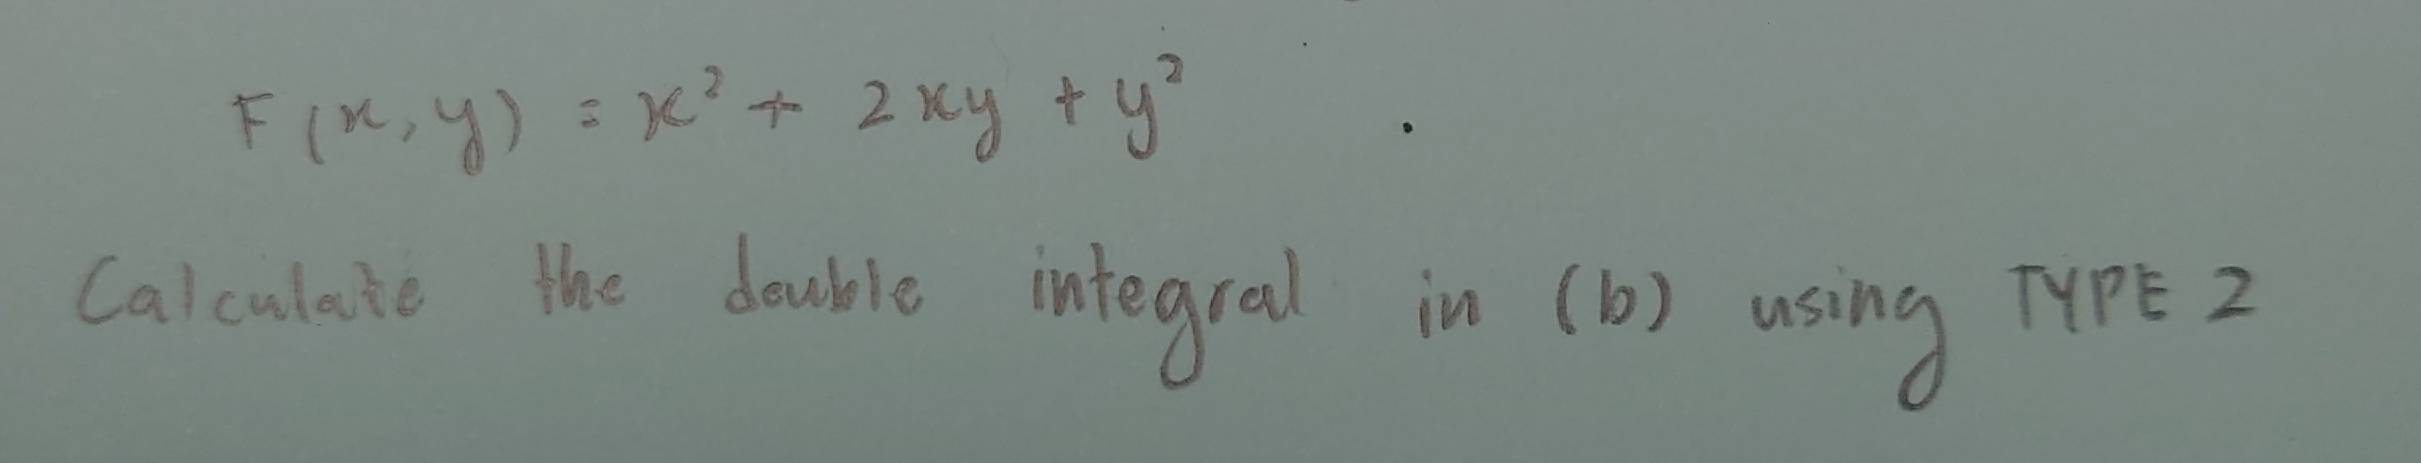 F(x,y) = x² + 2xy + y²
Calculate the double integral in (b) using TYPE 2